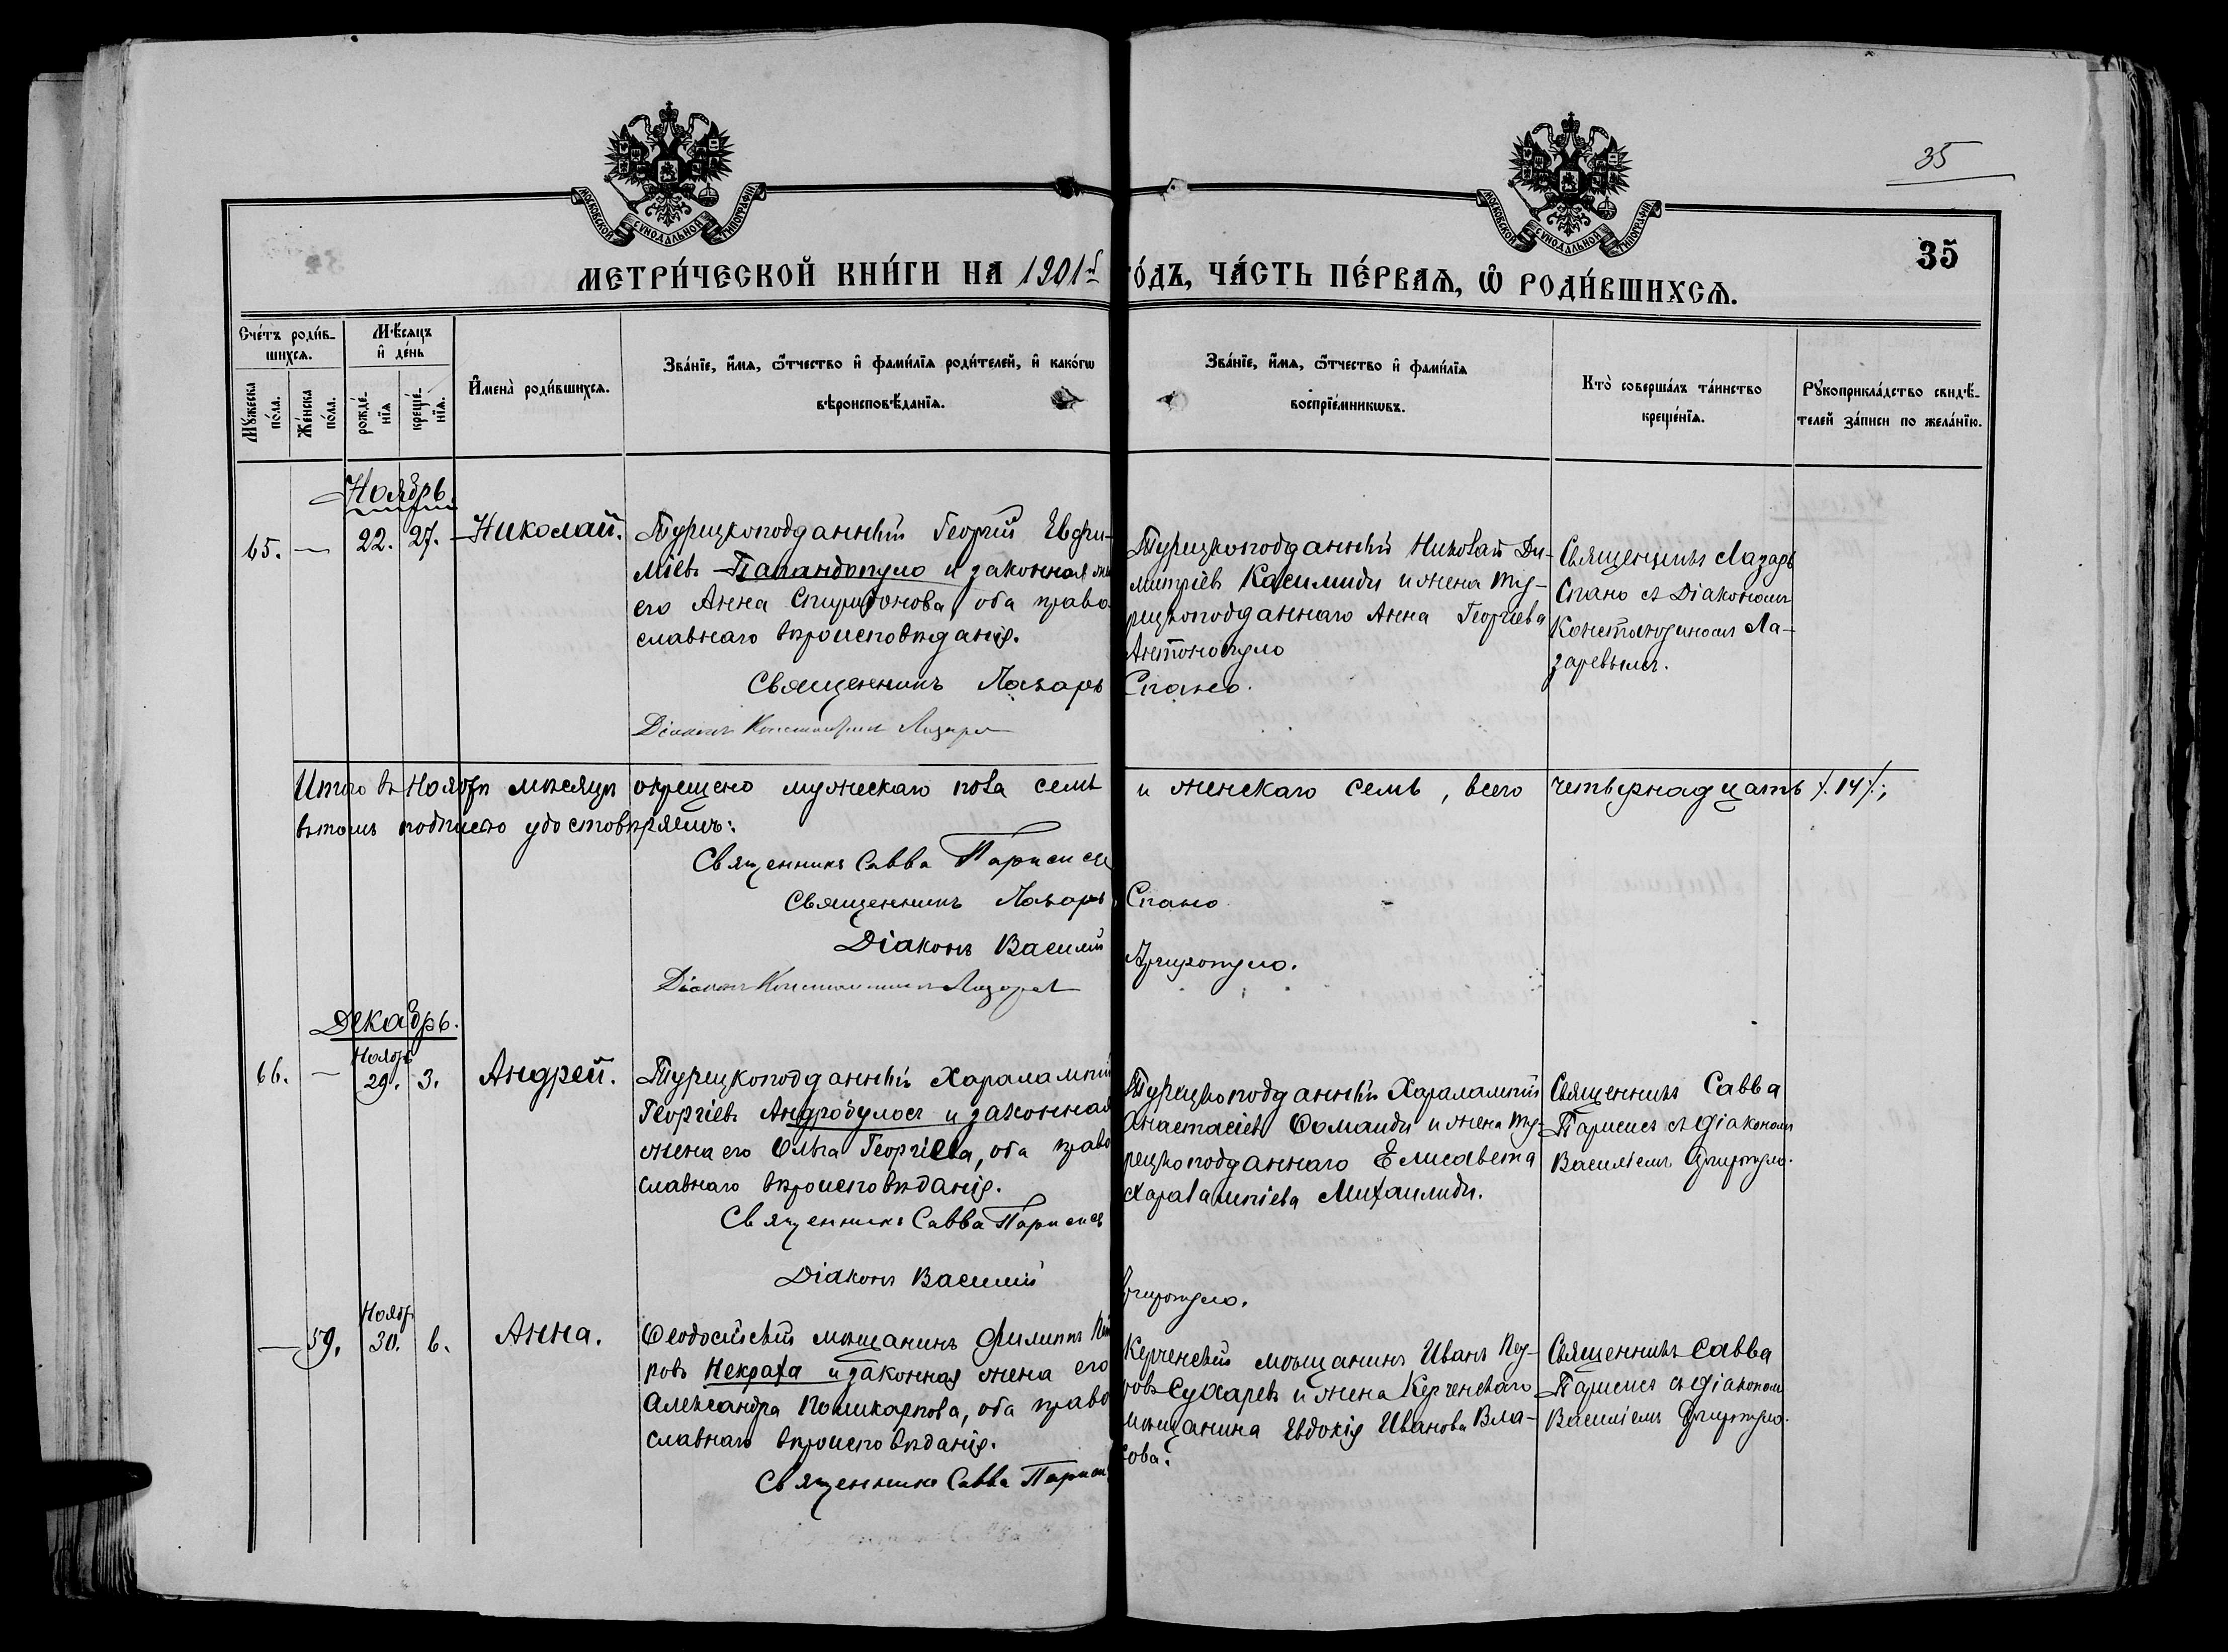 35
МОСКОВСКОЙ СѴНОДАЛЬНОЙ ТИПОГРАФІИ
МОСКОВСКОЙ СѴНОДАЛЬНОЙ ТИПОГРАФІИ
35
МЕТРИ́ЧЕСКОЙ КНИ́ГИ НА 1901й ГО́ДЪ, ЧА́СТЬ ПЕ́РВАѦ, Ѽ РОДИ́ВШИХСѦ.
Сче́тъ роди́в-
шихсѧ.
Мꙋжеска по́ла.
Же́нска по́ла.
Мѣ́сѧцъ
и де́нь
рожде́-
нїѧ
креще́-
нїѧ.
Имена̀ роди́вшихсѧ.
Зва́нїе, и́мѧ, ѻ́тчество и фами́лїѧ роди́телей, и како́гѡ
вѣроисповѣ́данїѧ.
Зва́нїе, и́мѧ, ѻ́тчество и фами́лїѧ
воспрїе́мникѡвъ.
Кто̀ соверша́лъ та́инство
креще́нїѧ.
Рꙋкоприкла́дство свидѣ́-
телей за́писи по жела́нїю.
Ноябрь.
65. — 22. 27. Николай.
Турецкоподданный Георгій Евфи-
міевъ Папандопуло и законная жена
его Анна Спиридонова, оба право-
славнаго вѣроисповѣданія.
Турецкоподданный Николай Ди-
митріевъ Касимиди и жена ту-
рецкоподданнаго Анна Георгіева
Антонопуло
Священникъ Лазарь
Спано съ Діакономъ
Константиномъ Ла-
заревымъ.
Священникъ Лазарь Спано.
Діаконъ Константинъ Лазаревъ
Итого въ Ноябрѣ мѣсяцѣ окрещено мужескаго пола семь и женскаго семь, всего четырнадцать /. 14 /.;
въ томъ подписью удостовѣряемъ:
Священникъ Савва Парисисъ
Священникъ Лазарь Спано
Діаконъ Василій Аргиропуло.
Діаконъ Константинъ Лазаревъ
Декабрь.
66. — Ноябр. 29. 3. Андрей.
Турецкоподданный Харалампій
Георгіевъ Андробулосъ и законная
жена его Ольга Георгіева, оба право
славнаго вѣроисповѣданія.
Турецкоподданный Харалампій
Анастасіевъ Ѳомаиди и жена ту-
рецкоподданнаго Елисавета
Харалампіева Михаилиди.
Священникъ Савва
Парисисъ съ діакономъ
Василіемъ Аргиропуло.
Священникъ Савва Парисисъ
Діаконъ Василій Аргиропуло.
— 59. Ноябр. 30. 6. Анна.
Ѳеодосійскій мѣщанинъ Филиппъ Пет
ровъ Некраха и законная жена его
Александра Поликарпова, оба право
славнаго вѣроисповѣданія.
Керченскій мѣщанинъ Иванъ Пет-
ровъ Сухаревъ и жена Керченскаго
мѣщанина Евдокія Иванова Вла-
сова.
Священникъ Савва
Парисисъ съ діакономъ
Василіемъ Аргиропуло.
Священникъ Савва Парисисъ